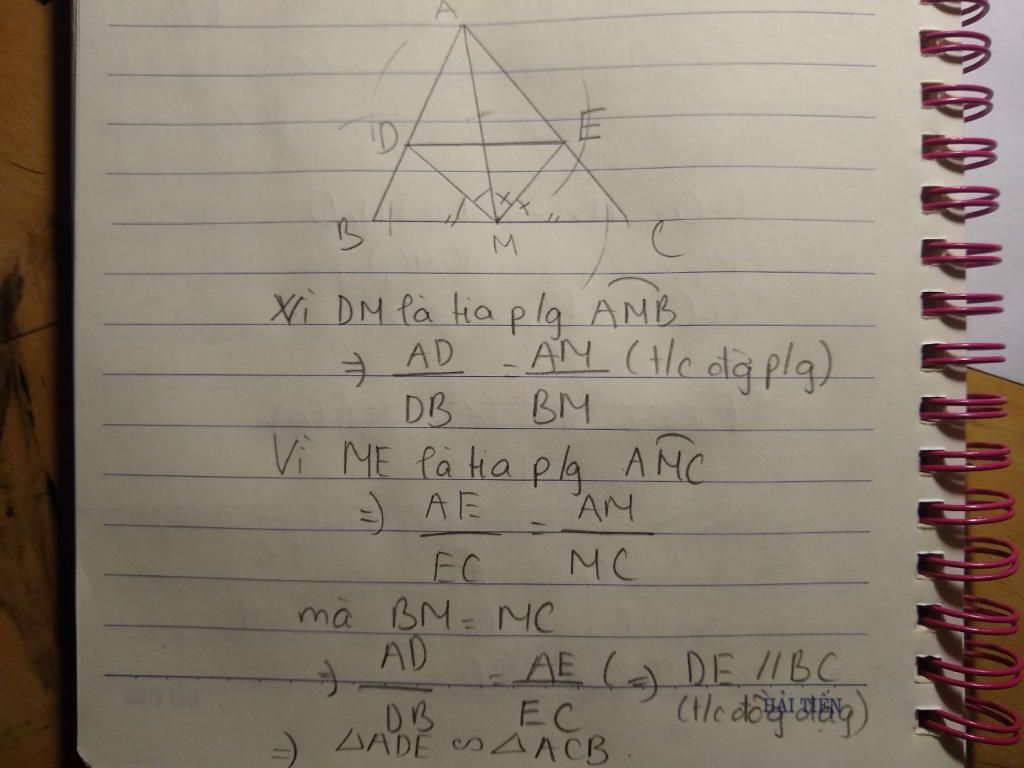 A
D E
B M C
Vì DM là tia p/g AMB
=) AD/DB = AM/BM (t/c đg p/g)
Vì ME là tia p/g AMC
=) AE/EC = AM/MC
mà BM = MC
=) AD/DB = AE/EC (=) DE // BC
HẢI TIẾN
=) △ADE ∽ △ACB